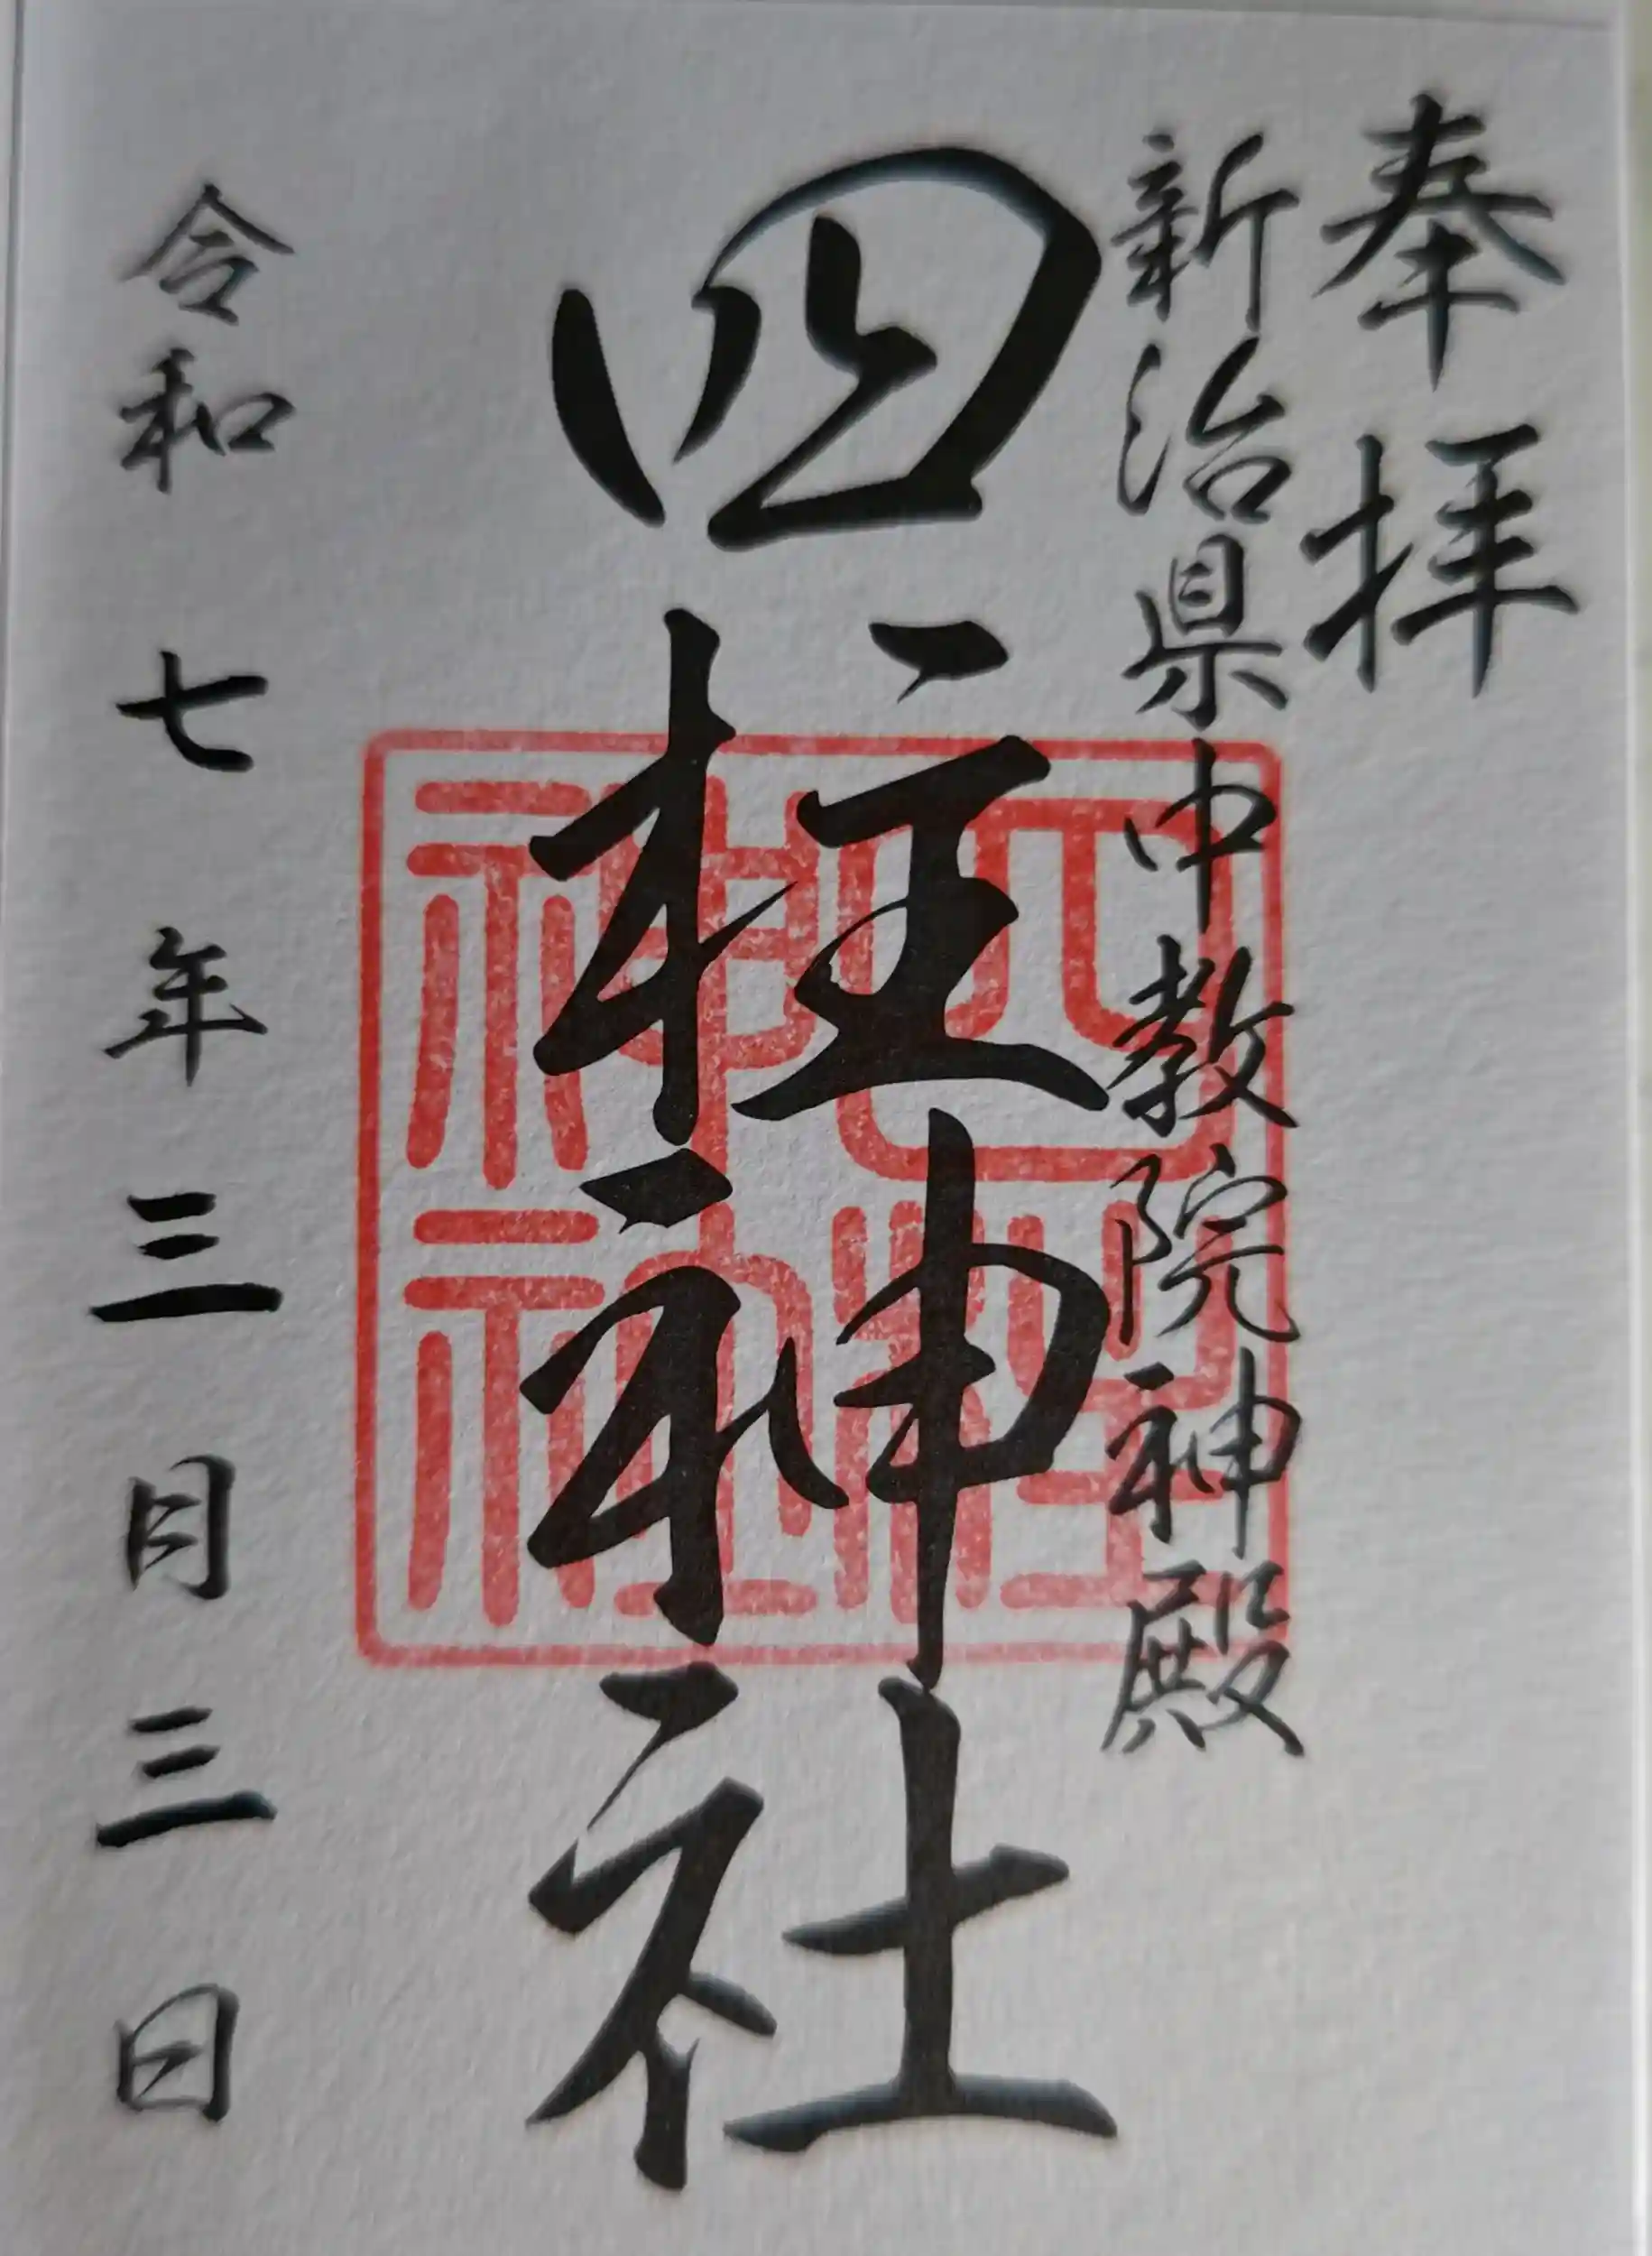 奉拝
新治県中教院神殿
四柱神社
四柱神社
令和七年三月三日